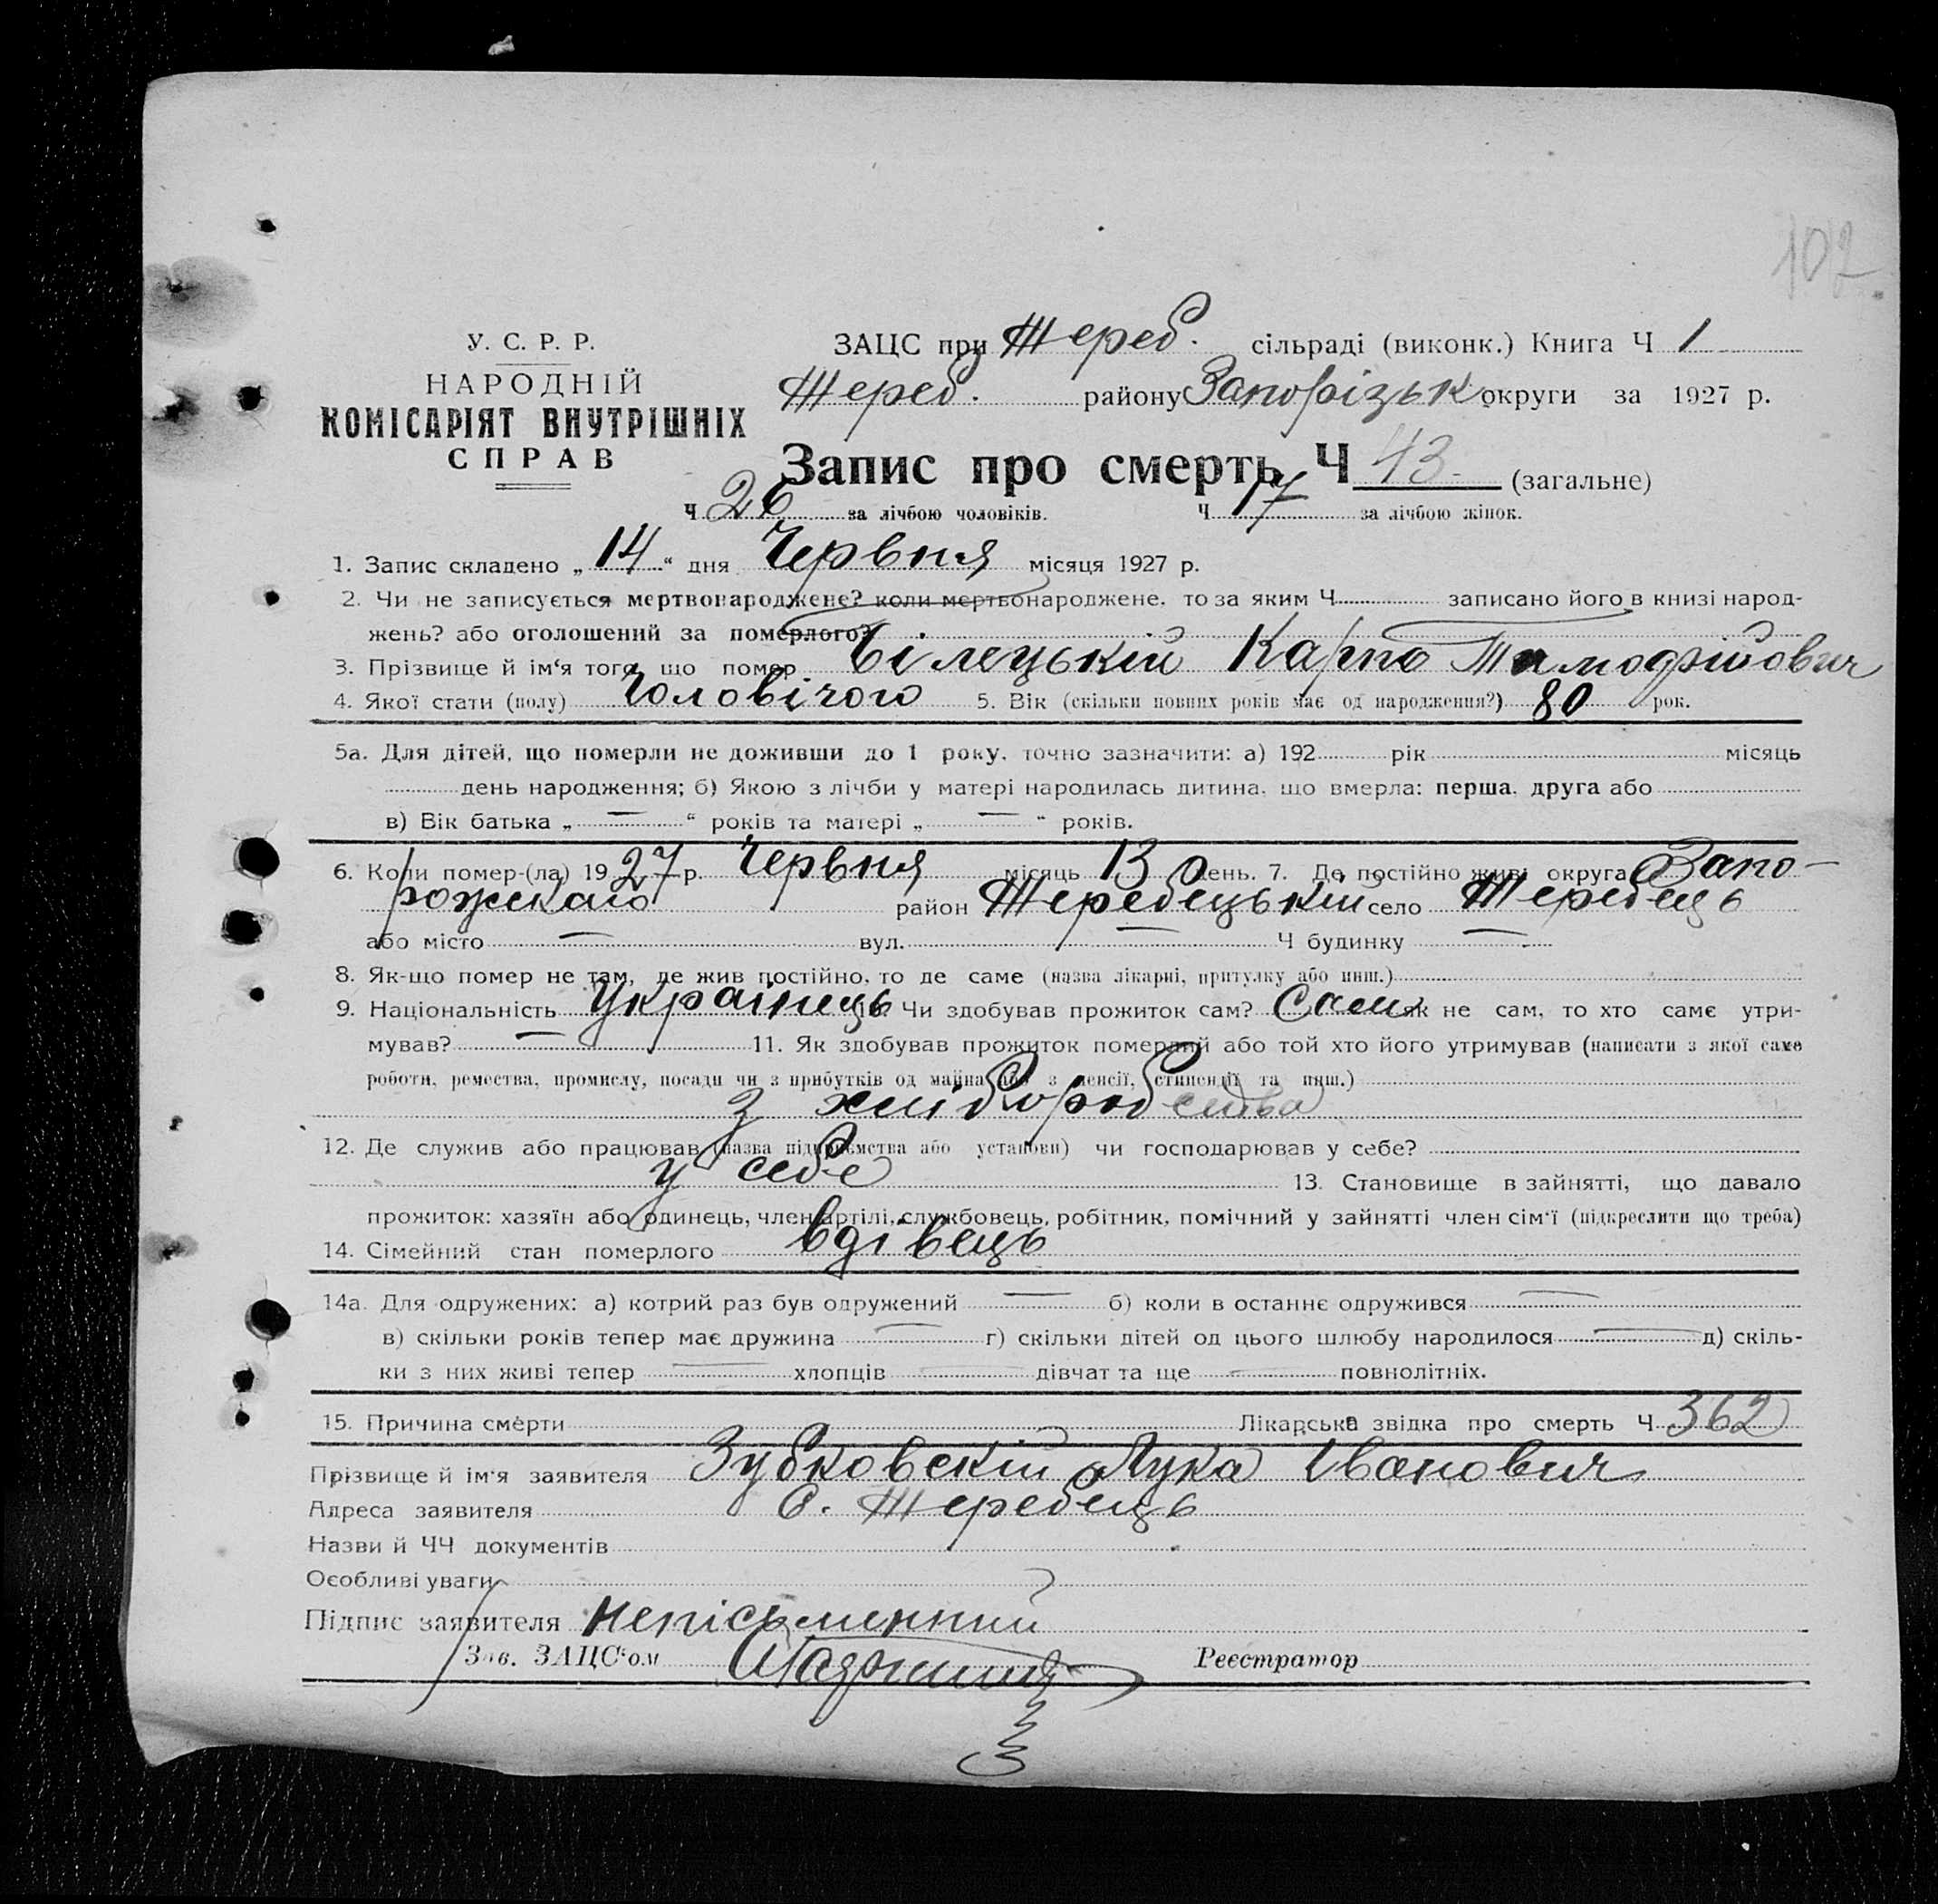 102
У. С. Р. Р.
НАРОДНІЙ
КОМІСАРІЯТ ВНУТРІШНІХ
СПРАВ
ЗАЦС при Тереб. сільраді (виконк.) Книга Ч 1
Тереб. району Запорізьк округи за 1927 р.
Запис про смерть Ч 43 (загальне)
Ч 26 за лічбою чоловіків. Ч 17 за лічбою жінок.
1. Запис складено „ 14 “ дня Червня місяця 1927 р.
2. Чи не записується мертвонароджене? коли мертвонароджене, то за яким Ч записано його в книзі народ-
жень? або оголошений за померлого?
3. Прізвище й ім‘я того, що помер Білецькій Карпо
4. Якої стати (полу) Чоловічого 5. Вік (скільки повних років має од народження?) 80 рок.
5а. Для дітей, що померли не доживши до 1 року, точно зазначити: а) 192 рік місяць
день народження; б) Якою з лічби у матері народилась дитина, що вмерла: перша, друга або
в) Вік батька „ — “ років та матері „ — “ років.
6. Коли помер-(ла) 1927 р. Червня місяць 13 день. 7. Де постійно живі округа Запо-
рожского район Теребецький село Теребець
або місто — вул. — Ч будинку —
8. Як-що помер не там, де жив постійно, то де саме (назва лікарні, притулку або инш.)
9. Національність Українець 10. Чи здобував прожиток сам? Сам як не сам, то хто саме утри-
мував? — 11. Як здобував прожиток померлий або той хто його утримував (написати з якої саме
роботи, ремества, промислу, посади чи з прибутків од майна або з пенсії, стипендії та инш.)
з хліборобства
12. Де служив або працював (назва підприємства або установи) чи господарював у себе?
у себе 13. Становище в зайнятті, що давало
прожиток: хазяїн або одинець, член артілі, службовець, робітник, помічний у зайнятті член сім‘ї (підкреслити що треба)
14. Сімейний стан померлого вдівець
14а. Для одружених: а) котрий раз був одружений — б) коли в останнє одружився —
в) скільки років тепер має дружина — г) скільки дітей од цього шлюбу народилося — д) скіль-
ки з них живі тепер — хлопців — дівчат та ще — повнолітніх.
15. Причина смерти Лікарська звідка про смерть Ч 362
Прізвище й ім‘я заявителя Зубковскій Лука Іванович
Адреса заявителя С. Теребець
Назви й ЧЧ документів
Особливі уваги
Підпис заявителя Непісьменний
Зав. ЗАЦС‘ом
Реєстратор